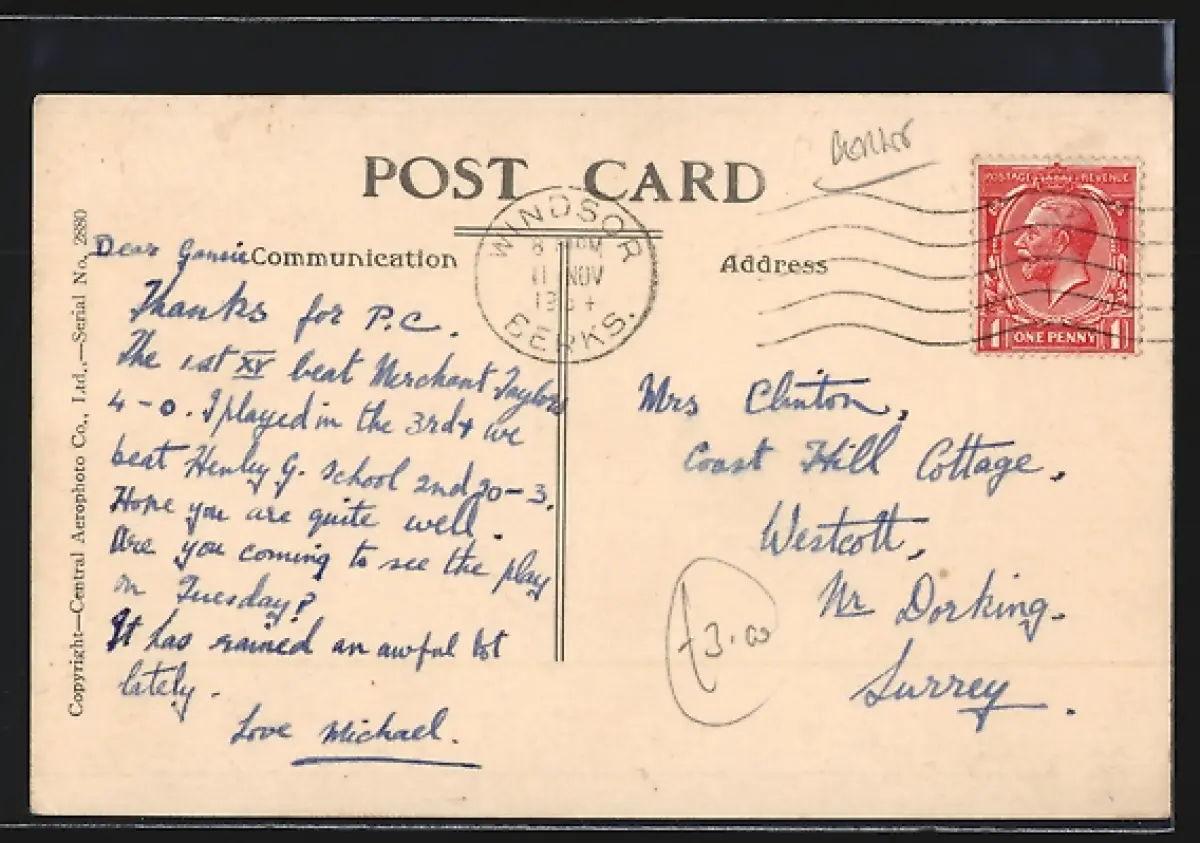 POST CARD
Communication
Address
Copyright—Central Aerophoto Co., Ltd.,—Serial No. 2880
WINDSOR
PM
11 NOV
BERKS.
POSTAGE REVENUE
1 ONE PENNY 1
Dear
Thanks for P.C.
The 1st XV beat Merchant Taylors
4-0. I played in the 3rd & we
beat Henley G. School 2nd 20-3.
Hope you are quite well.
Are you coming to see the play
on Tuesday?
It has rained an awful lot
lately.
Love Michael.
Mrs Clinton,
Coast Hill Cottage,
Westcott,
Nr Dorking.
Surrey.
£3.00